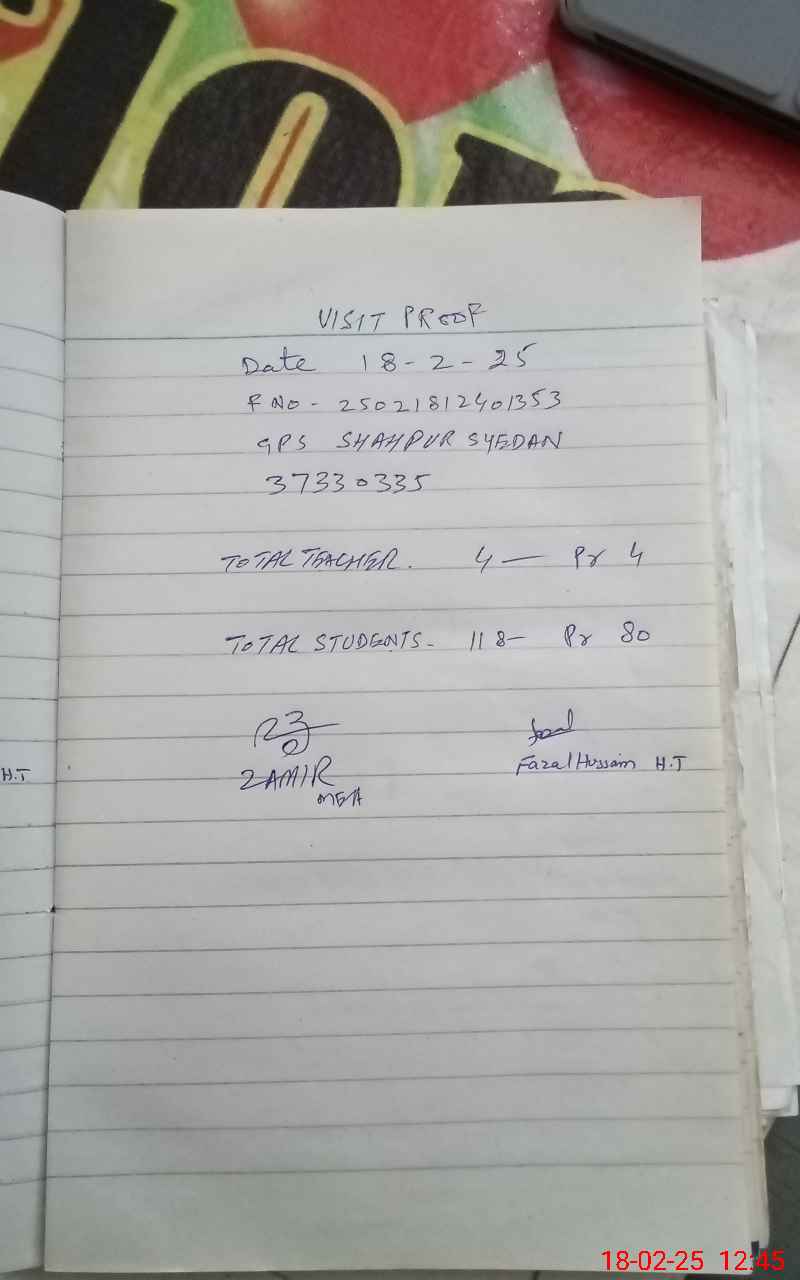 VISIT PROOF
Date 18-2-25
F NO - 25021812401353
GPS SHAHPUR SYEDAN
37330335
TOTAL TEACHER. 4 — Pr 4
TOTAL STUDENTS - 118 - Pr 80
ZAMIR
MEA
Fazal Hussain H.T
H.T
18-02-25 12:45